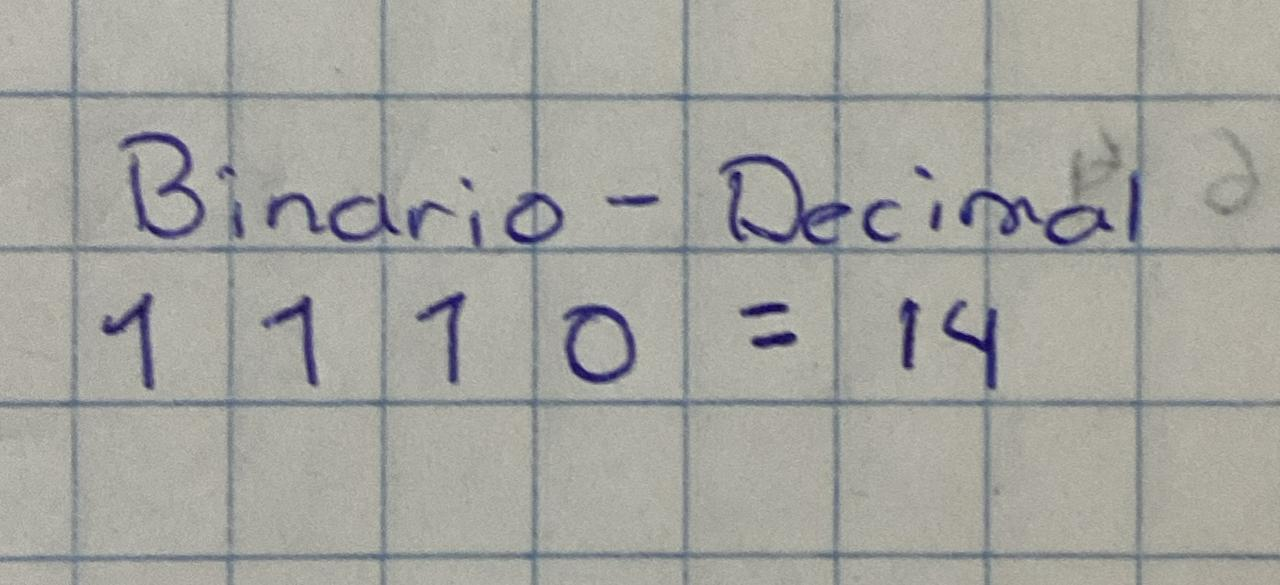 Binario - Decimal
1 1 1 0 = 14